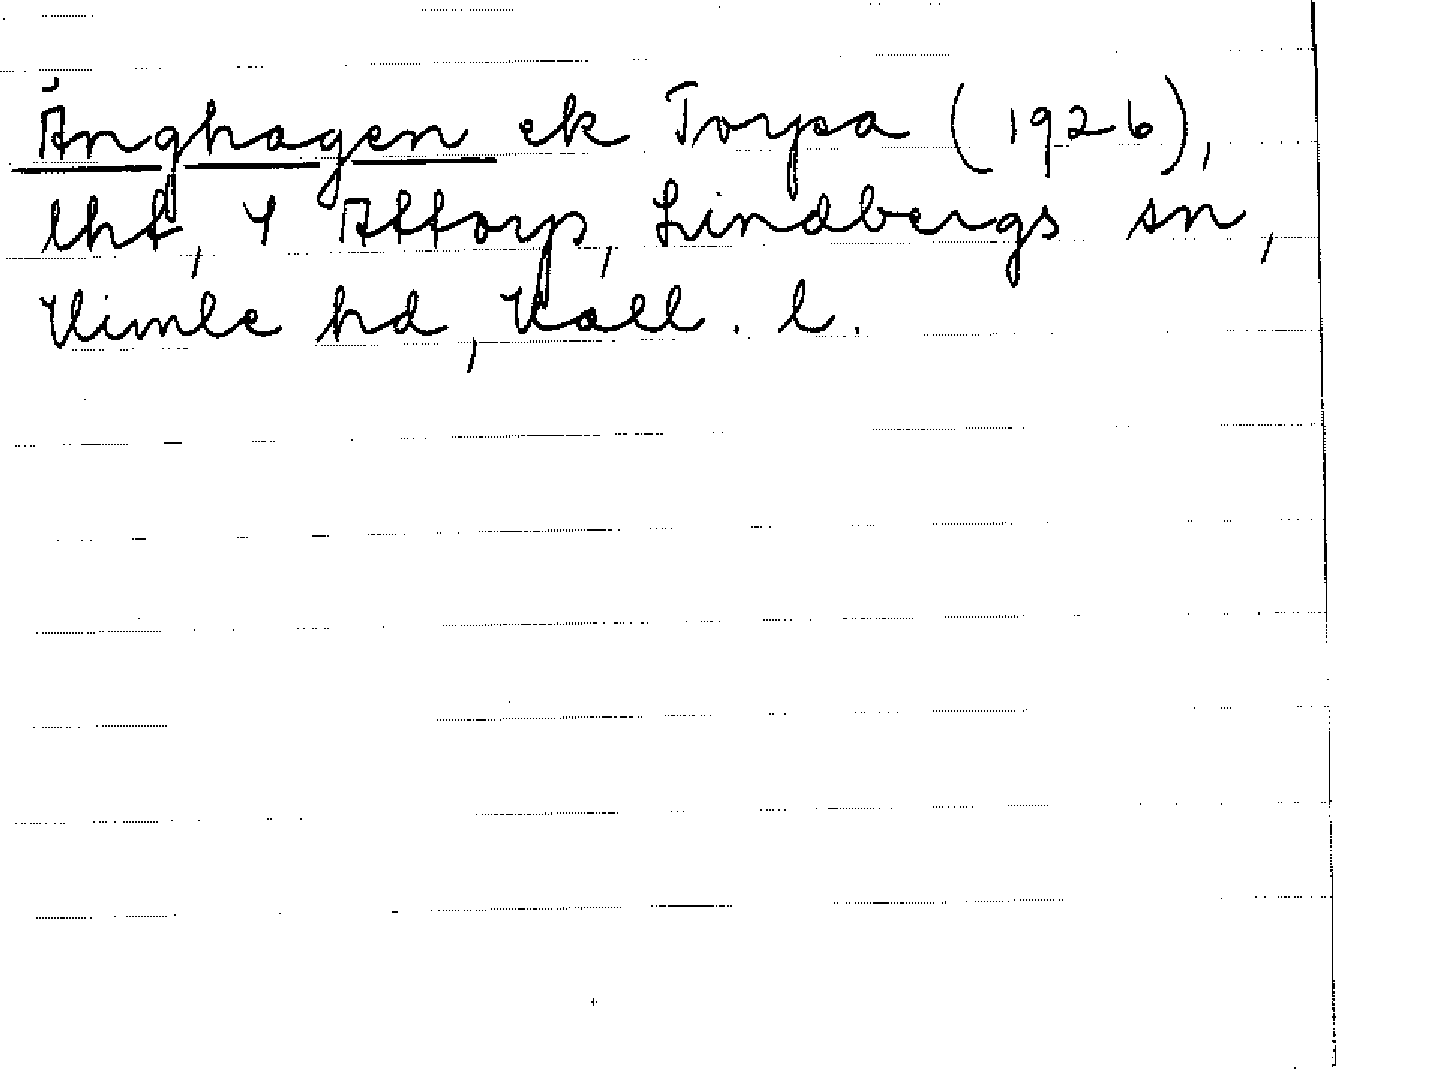 Änghagen ek Torpa (1926),
lht, 4 Attorp, Lindbergs sn,
Himle hd, Hall. l.